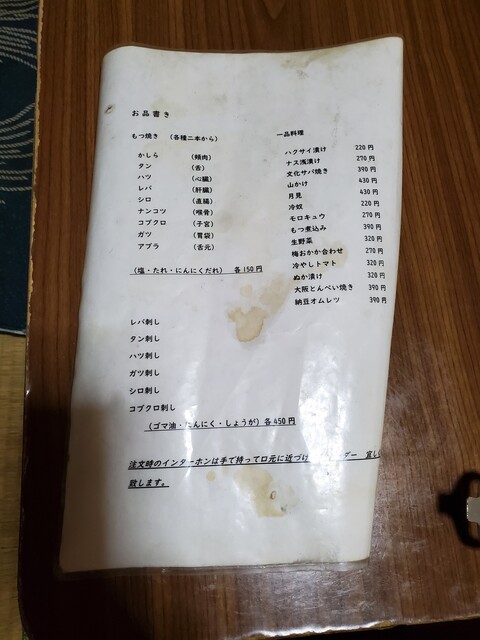 お品書き
もつ焼き （各種二本から）
かしら （頬肉）
タン （舌）
ハツ （心臓）
レバ （肝臓）
シロ （直腸）
ナンコツ （喉骨）
コブクロ （子宮）
ガツ （胃袋）
アブラ （舌元）
（塩・たれ・にんにくだれ） 各150円
レバ刺し
タン刺し
ハツ刺し
ガツ刺し
シロ刺し
コブクロ刺し
（ゴマ油・にんにく・しょうが）各450円
一品料理
ハクサイ漬け 220円
ナス浅漬け 270円
文化サバ焼き 390円
山かけ 430円
月見 430円
冷奴 220円
モロキュウ 270円
もつ煮込み 390円
生野菜 320円
梅おかか合わせ 270円
冷やしトマト 320円
ぬか漬け 320円
大阪とんぺい焼き 390円
納豆オムレツ 390円
注文時のインターホンは手で持って口元に近づけ ダー 宜し
致します。